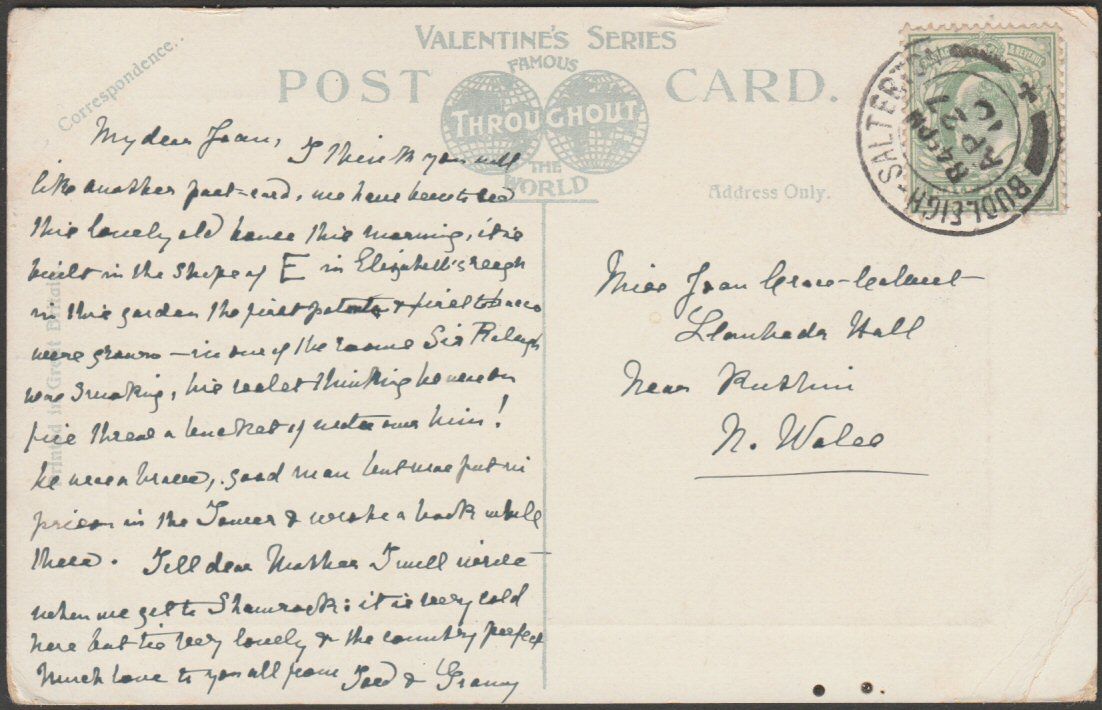 Correspondence.
VALENTINE'S SERIES
FAMOUS
POST CARD.
THROUGHOUT
THE
WORLD
Address Only.
Printed in Great Britain
BUDLEIGH-SALTERTON
8 45 PM
AP 27
10
My dear Joan,
I think you will
like another post-card, we have been to see
this lovely old house this morning, it is
built in the shape of E in Elizabeth's reign
in this garden the first potato & first tobacco
were grown — in one of the rooms Sir Raleigh
was smoking, his valet thinking he was on
fire threw a bucket of water over him!
he was a brave, good man but was put in
prison in the Tower & wrote a book while
there. Tell dear Mother I will write
when we get to : it is very cold
here but tis very lovely & the country perfect
Much love to you all from & Granny
Miss Joan
Hall
Near Ruthin
N. Wales